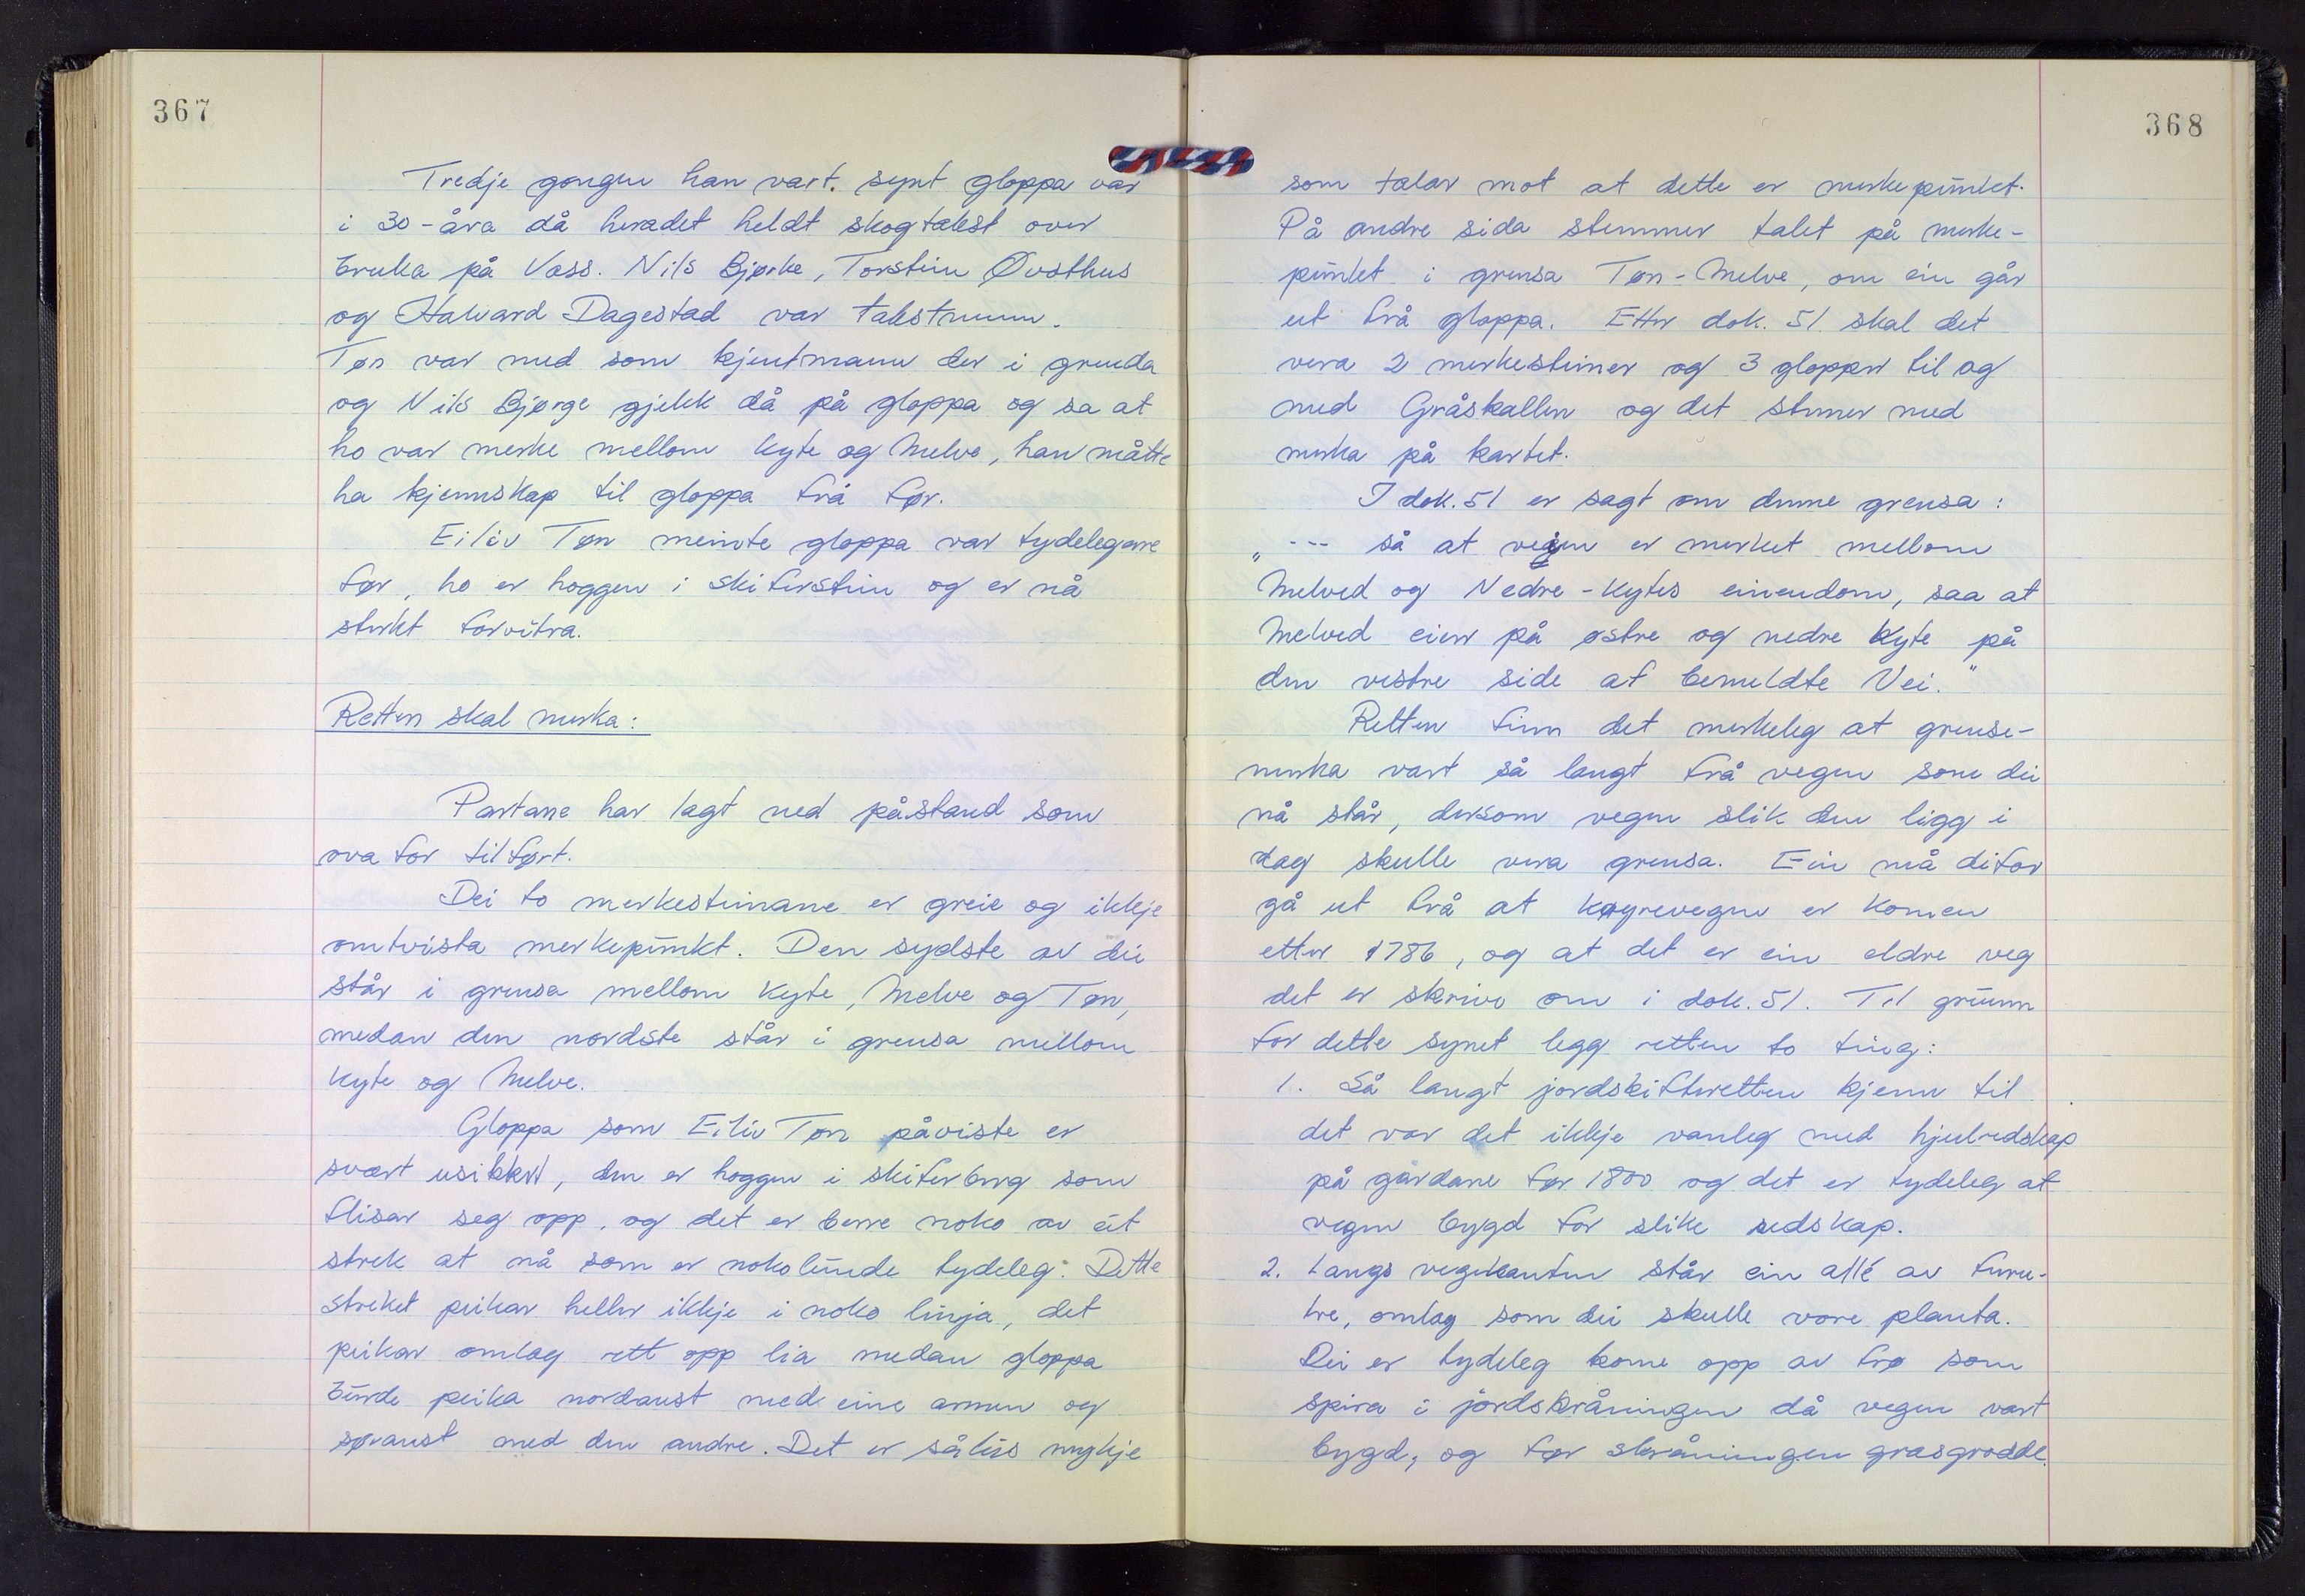 367
Tredje gongen han vart synt gloppa var
i 30-åra då heradet heldt skogtakst over
bruka på Voss. Nils Bjørke, Torstein Øvsthus
og Halvard Dagestad var takstmenn.
Tøn var med som kjentmann der i grenda
og Nils Bjørge gjekk då på gloppa og sa at
ho var merke mellom Kyte og Melve, han måtte
ha kjennskap til gloppa frå før.
Eiliv Tøn meinte gloppa var tydelegare
før, ho er hoggen i skiferstein og er nå
sterkt forvitra.
Retten skal merka:
Partane har lagt ned påstand som
ovafor tilført.
Dei to merkesteinane er greie og ikkje
omtvista merkepunkt. Den sydste av dei
står i grensa mellom Kyte, Melve og Tøn,
medan den nordste står i grensa mellom
Kyte og Melve.
Gloppa som Eiliv Tøn påviste er
svært usikker, den er hoggen i skiferberg som
flisar seg opp, og det er berre noko av eit
strek at nå som er nokolunde tydeleg. Dette
streket peikar heller ikkje i noko linja, det
peikar omlag rett opp lia medan gloppa
burde peika nordaust med eine armen og
søraust med den andre. Det er såleis mykje
368
som talar mot at dette er merkepunket.
På andre sida stemmer talet på merke-
punket i grensa Tøn-Melve, om ein går
ut frå gloppa. Etter dok. 51 skal det
vera 2 merkesteiner og 3 glopper til og
med Gråskallen og det stemer med
merka på kartet.
I dok. 51 er sagt om denne grensa:
„--- så at veien er merket mellom
Melved og Nedre-Kytes eiendom, saa at
Melved eier på østre og nedre Kyte på
den vestre side af bemeldte Vei."
Retten finn det merkeleg at grense-
merka vart så langt frå vegen som dei
nå står, dersom vegen slik den ligg i
dag skulle vera grensa. Ein må difor
gå ut frå at køyrevegen er komen
etter 1786, og at det er ein eldre veg
det er skrive om i dok. 51. Til grunn
for dette synet legg retten to ting:
1. Så langt jordskifteretten kjenn til
det var det ikkje vanleg med hjulredskap
på gardane før 1800 og det er tydeleg at
vegen bygd for slike redskap.
2. Langs vegkanten står ein allé av furu-
tre, omlag som dei skulle vore planta.
Dei er tydeleg kome opp av frø som
spira i jordskråningen då vegen vart
bygd, og før skråningen grasgrodde.